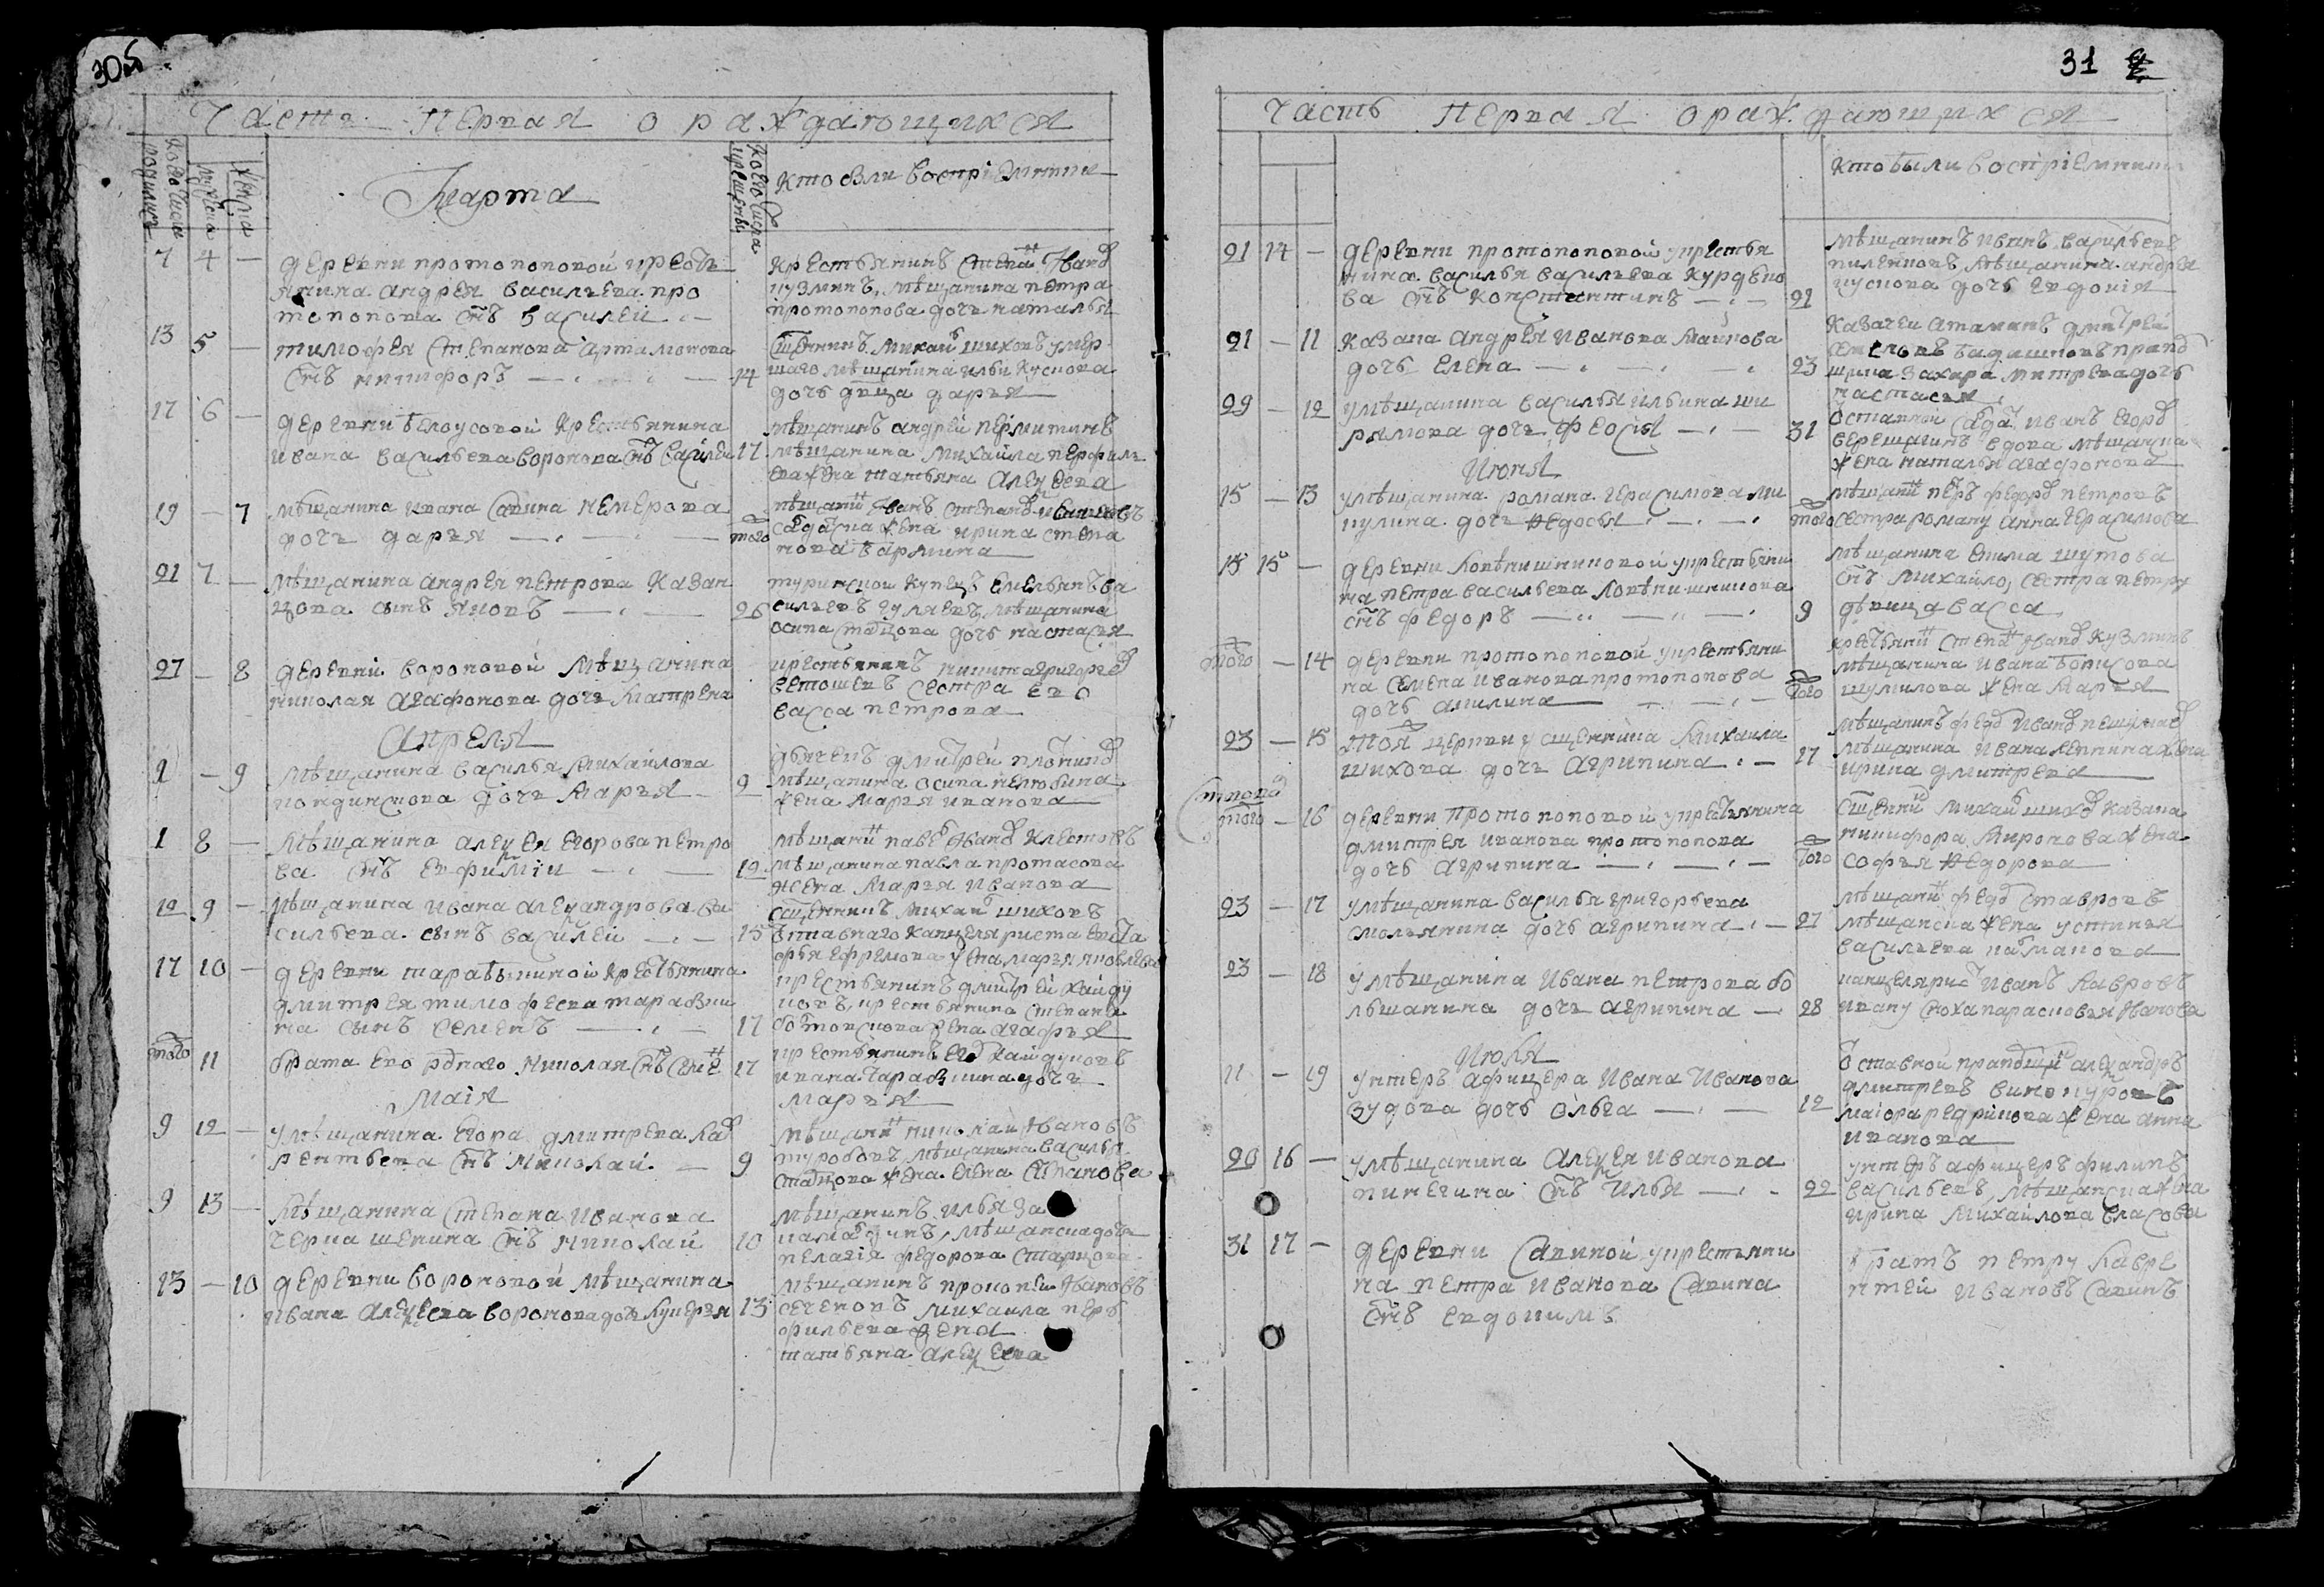 305
Часть первая о раждающихся
коего числа родились
мужеска
женска
Марта
коего числа крещены
кто были восприемники
7 4 — деревни протопоповой крестья
янина андрея васильева про
топопова снъ василей
крестьянинъ степан Иванов
кузминъ, мѣщанина петра
протопопова дочь наталья
13 5 — тимофея степанова артамонова
снъ никифоръ — 14
священникъ михаил шиховъ умер
шаго мѣщанина ильи кускова
дочь двца дарья
17 6 — деревни белоусовой крестьянина
ивана васильева воронова снъ василеи 17
мѣщанинъ андрей пермитинъ
мѣщанина михаила перфиль
ева жена татьяна алексеева
19 — 7 мѣщанина ивана савина немерова
дочь дарья — того
мѣщанин Иванъ степанов
салдатска жена ирина степа
нова бармина
21 7 — мѣщанина андрея петрова казан
цова сынъ яковъ — 26
туринской купецъ емельянъ ва
сильевъ гуляевъ, мѣщанина
осипа старцова дочь настасья
27 — 8 деревни вороновой мѣщанина
николая агафонова дочь матрена
крестьянинъ никита григорьев
ветошевъ сестра ево
васса петрова
Апреля
1 — 9 мѣщанина василья михаилова
кондинскова дочь марья — 9
дьяченъ дмитрей плотников
мѣщанина осипа
жена марья иванова
1 8 — мѣщанина алексея егорова петро
ва снъ евфимiи — 12
мѣщанин павел Иванов клестовъ
мѣщанина павла протасова
жена марья иванова
12 9 — мѣщанина ивана александрова ва
сильева сынъ василей — 15
священникъ михаил шиховъ
отставнаго канцеляриста евста
фья ефремова жена марья яковлева
17 10 — деревни тарабыкиной крестьянина
дмитрея тимофеева
на сынъ семенъ — 17
крестьянинъ дмитрей кайду
ковъ, крестьянина степана
жена агафья
того 11 брата ево роднаго николая снъ семе 17
крестьянинъ егор кайдуковъ
ивана дочь
марья
Маiя
9 12 — у мѣщанина егора дмитрева лав
рентьева снъ николай — 9
мѣщанин николай Ивановъ
туробовъ, мѣщанина василья
старцова жена елена степанова
9 13 — мѣщанина степана иванова
чернашенина снъ николай 10
мѣщанинъ илья за
мѣщанска дочь
пелагiя федорова старцова
13 — 10 деревни вороновой мѣщанина
ивана алексеева воронова дочь лукерья 13
мѣщанинъ прокопеи Ивановъ
сеченовъ михаила перф
фильева жена
татьяна алексеева
31
Часть первая о раждающихся
кто были восприемники
21 14 — деревни протопоповой у крестья
нина василья васильева курдюко
ва снъ константинъ — 21
мѣщанинъ иванъ васильевъ
пиленковъ, мѣщанина андрея
кускова дочь евдокiя
21 — 11 казака андрея иванова маинова
дочь елена — 23
казачеи атаманъ дмитрей
семеновъ бадашковъ прапор
щика захара митрева дочь
настасья
29 — 12 у мѣщанина василья ильина ши
рямова дочь феосiя — 31
отставной салдат иванъ егоров
верещагинъ вдова мѣщанска
жена наталья агафонова
Июня
15 — 13 у мѣщанина романа герасимова ми
кулина дочь федосья — того
мѣщанин петръ федоров петровъ
сестра роману анна герасимова
15 15 — деревни у крестьяни
на петра васильева
снъ федоръ — 9
мѣщанина екима шутова
снъ михайло, сестра петру
дѣвица васса
того — 14 деревни протопоповой у крестьяни
на семена иванова протопопова
дочь акилина — того
крестьянин степан Иванов кузминъ
мѣщанина ивана борисова
шумилова жена марья
23 — 15 тоя церкви у священника михаила
шихова дочь агрипина — 27
мѣщанинъ федор Иванов
мѣщанина ивана жена
ирина дмитрева
того — 16 деревни протопоповой у крестьянина
дмитрея иванова протопопова
дочь агрипина — того
священник михаил шихов казака
никифора миронова жена
софья федорова
23 — 17 у мѣщанина василья григорьева
смольянина дочь агрипина — 27
мѣщанин федор ставровъ
мѣщанска жена устинья
васильева калманова
23 — 18 у мѣщанина ивана петрова бо
льшанина дочь агрипина — 28
канцелярист иванъ лавровъ
ивану сноха парасковья Иванова
Июля
11 — 19 унтеръ афицера ивана иванова
зудова дочь ольга — 12
отставной прапорщик александръ
дмитревъ винокуровъ
маiора редрикова жена анна
иванова
20 16 — у мѣщанина алексея иванова
пинегина снъ илья — 22
унтеръ афицеръ филипъ
васильевъ, мѣщанска жена
ирина михайлова власова
31 17 — деревни савиной у крестьяни
на петра иванова савина
снъ евдокимъ
братъ петру лавре
нтей ивановъ савинъ